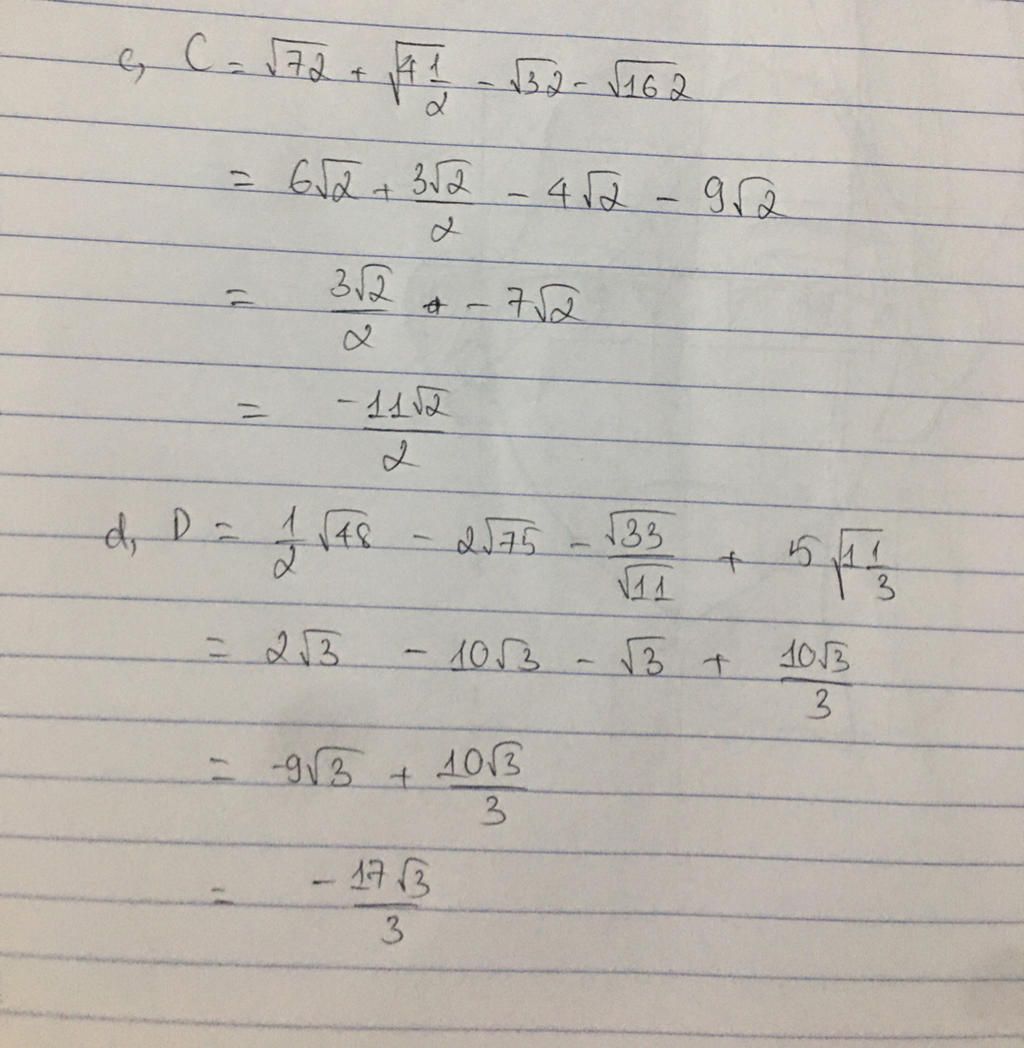 c, C = √72 + √4 1/2 - √32 - √162
= 6√2 + 3√2/2 - 4√2 - 9√2
= 3√2/2 - 7√2
= -11√2/2
d, D = 1/2 √48 - 2√75 - √33/√11 + 5√1 1/3
= 2√3 - 10√3 - √3 + 10√3/3
= -9√3 + 10√3/3
= -17√3/3